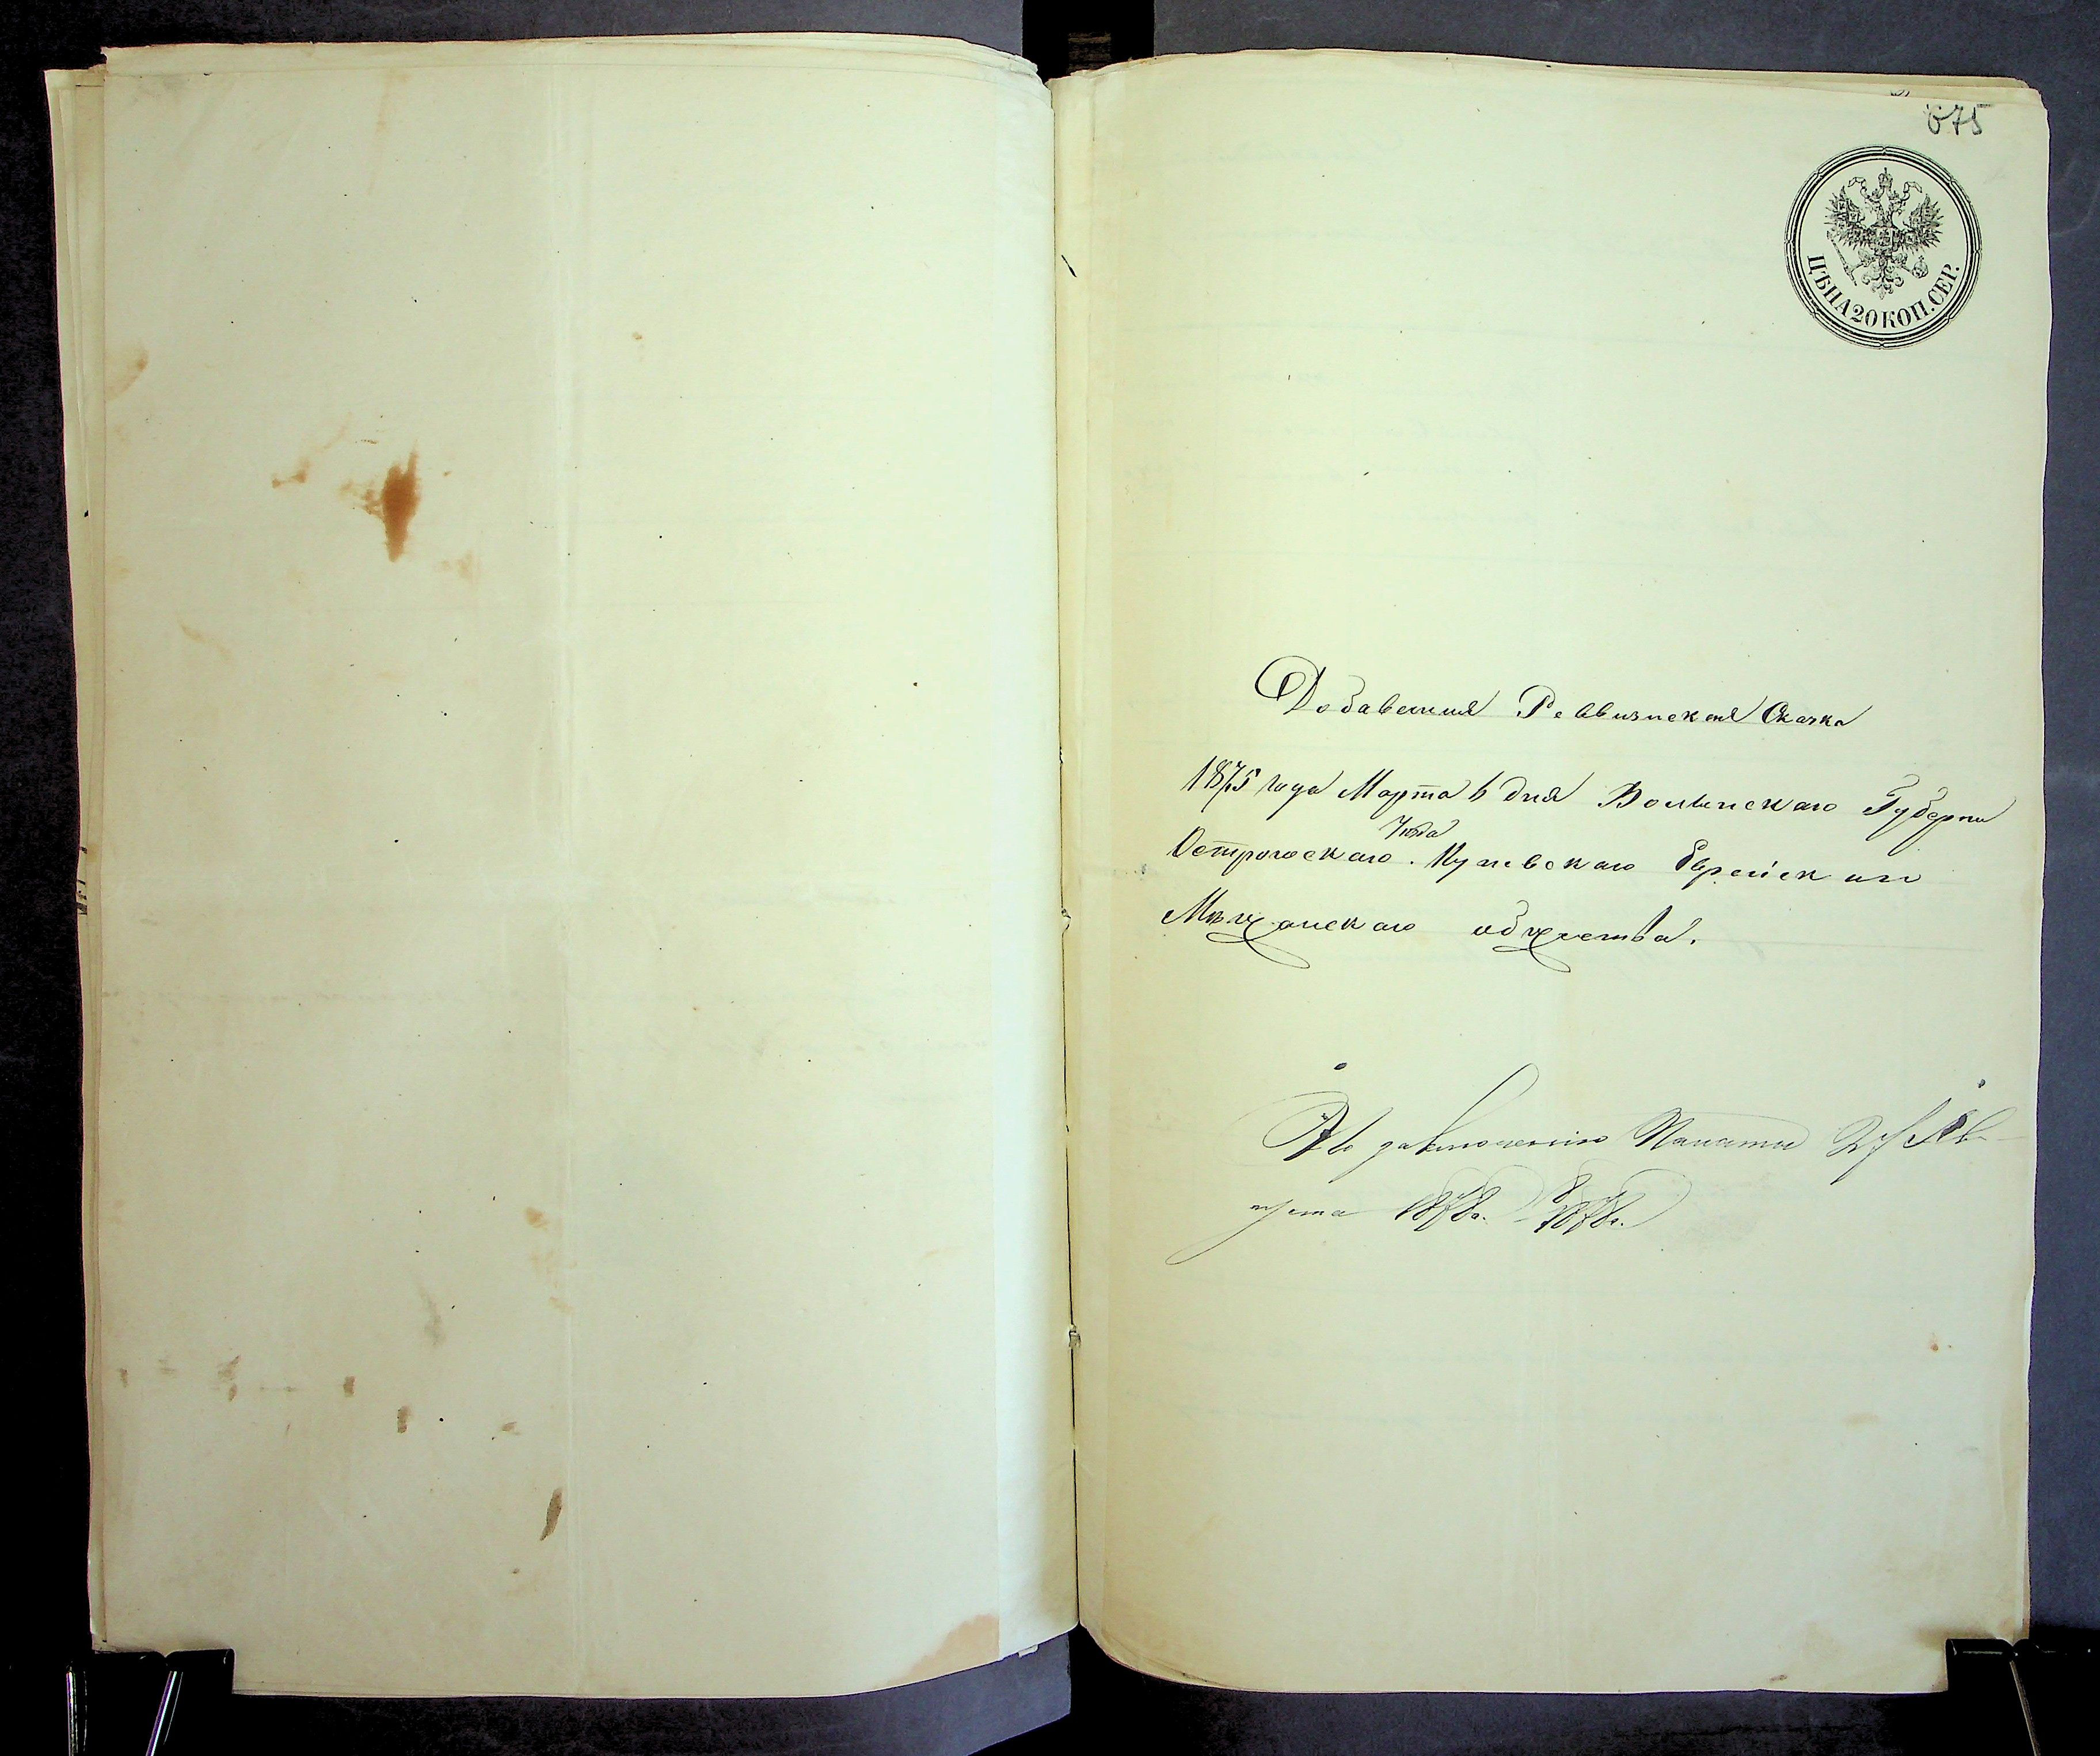 675
ЦѢНА 20 КОП. СЕР.
Добавочная Реввизскоя Сказка
1875 года Марта 6 дня Волынскаго Губерни
Уѣзда
Острогоскаго. Кулевскаго Еврейскаго
Мѣщанскаго общества.
По заключенію Палаты
1878г. 1878г.